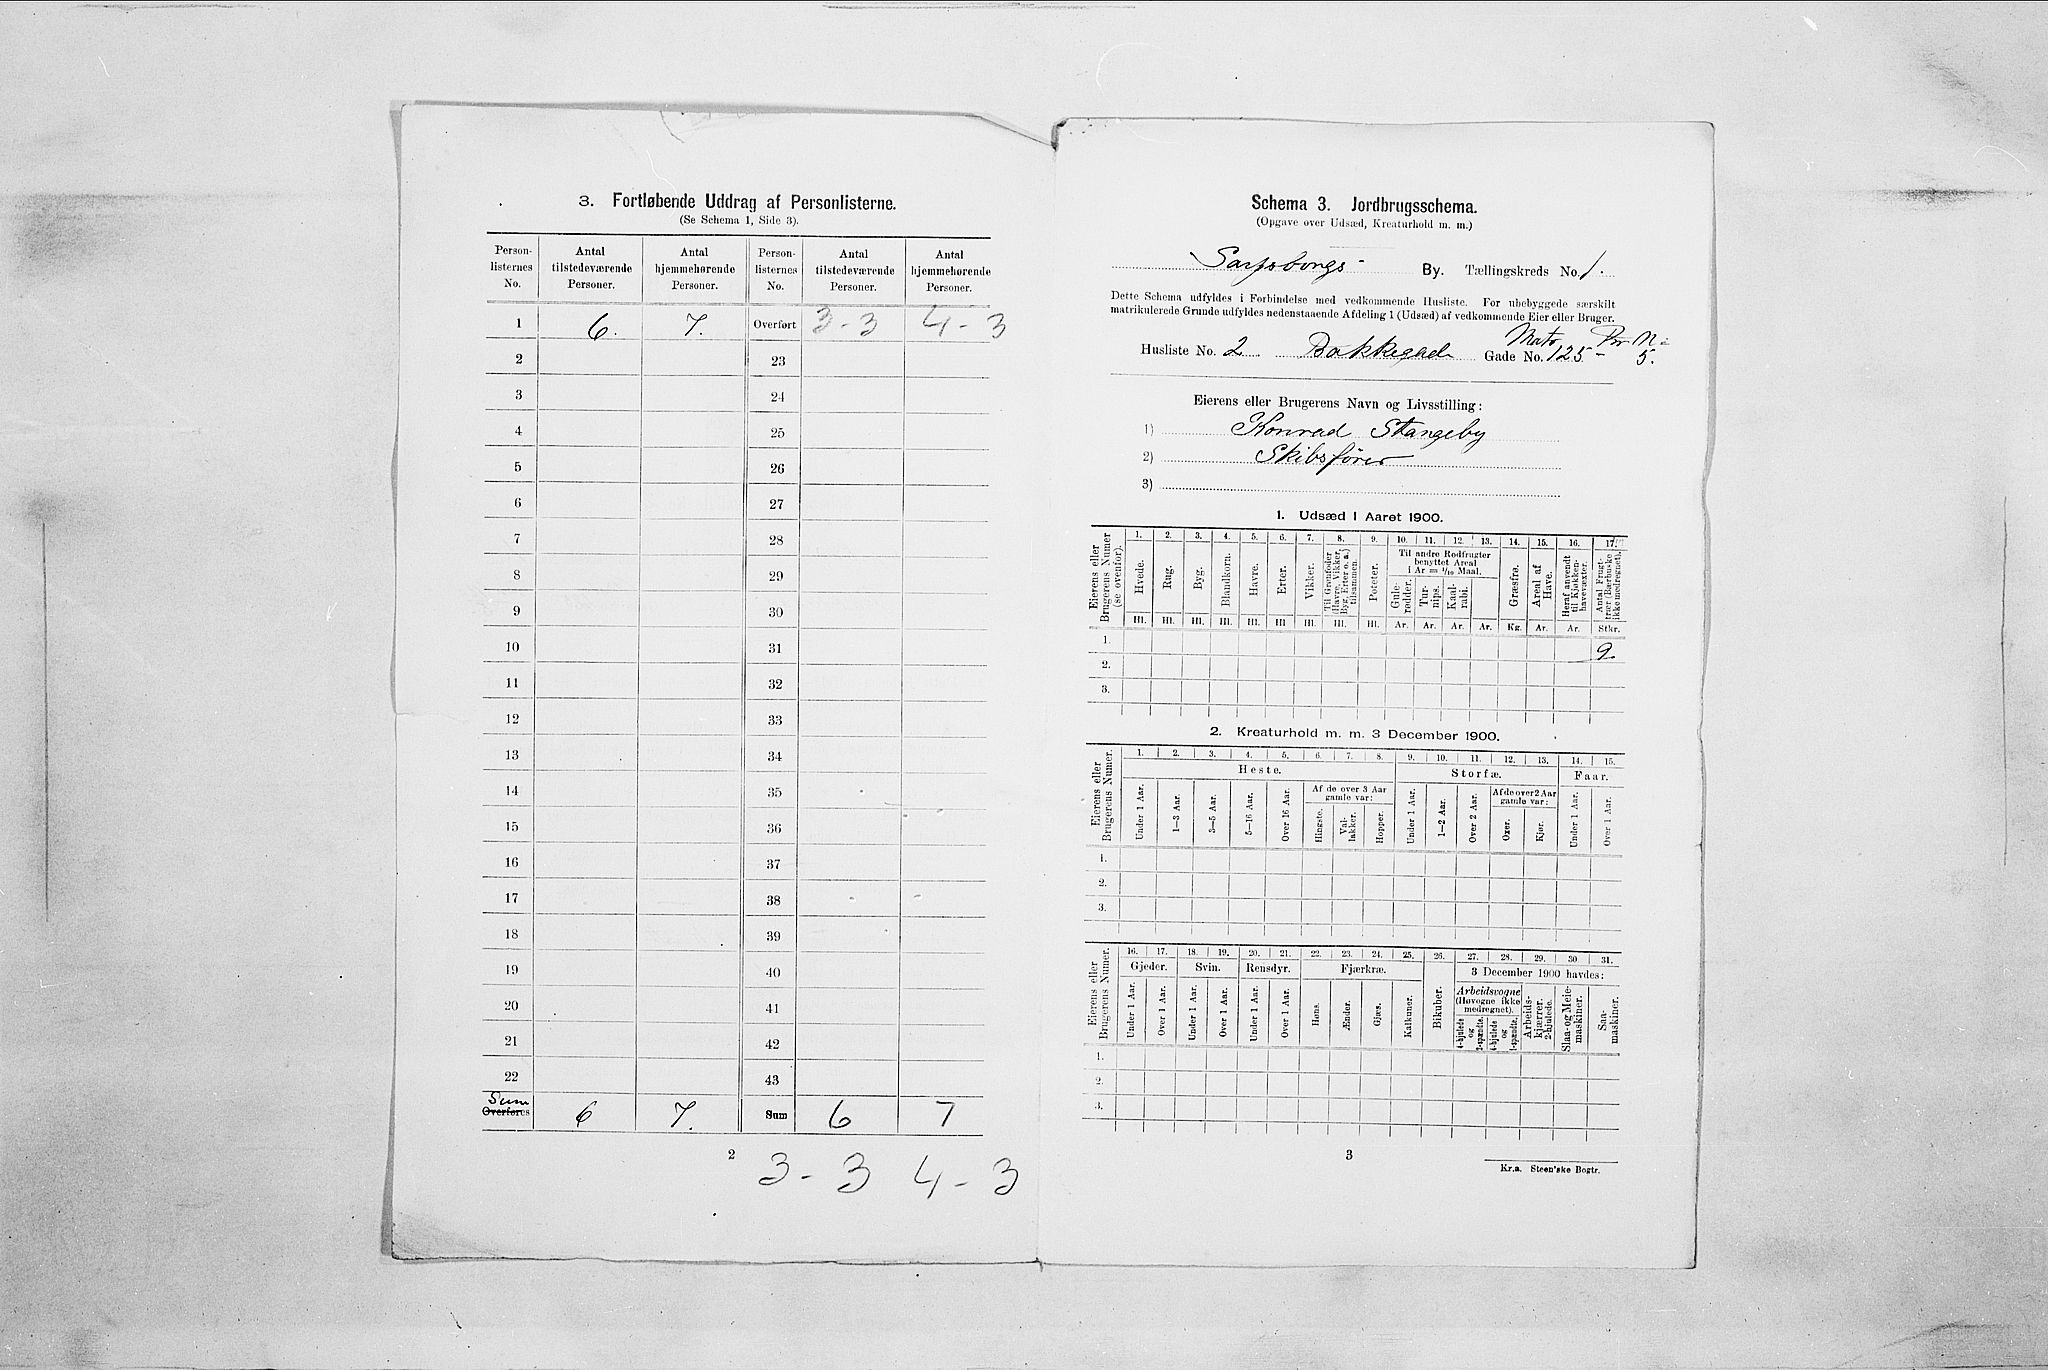 3. Fortløbende Uddrag af Personlisterne.
(Se Schema 1, Side 3).
Person-listernes No. | Antal tilstedeværende Personer. | Antal hjemmehørende Personer. | Person-listernes No. | Antal tilstedeværende Personer. | Antal hjemmehørende Personer.
1 | 6. | 7. | Overført | 3 - 3 | 4 - 3
2 | | | 23
3 | | | 24
4 | | | 25
5 | | | 26
6 | | | 27
7 | | | 28
8 | | | 29
9 | | | 30
10 | | | 31
11 | | | 32
12 | | | 33
13 | | | 34
14 | | | 35
15 | | | 36
16 | | | 37
17 | | | 38
18 | | | 39
19 | | | 40
20 | | | 41
21 | | | 42
22 | | | 43
Sum
Overføres | 6 | 7. | Sum | 6 | 7
2
3 - 3 4 - 3
Schema 3. Jordbrugsschema.
(Opgave over Udsæd, Kreaturhold m. m.)
Sarpsborgs By. Tællingskreds No. 1.
Dette Schema udfyldes i Forbindelse med vedkommende Husliste. For ubebyggede særskilt
matrikulerede Grunde udfyldes nedenstaaende Afdeling 1 (Udsæd) af vedkommende Eier eller Bruger.
Husliste No. 2 Bakkegad Gade No. 125 - 5.
Eierens eller Brugerens Navn og Livsstilling:
1) Konrad Stangeby
2) Skibsfører
3)
1. Udsæd i Aaret 1900.
Eierens eller Brugerens Numer (se ovenfor).
1. 2. 3. 4. 5. 6. 7. 8. 9. 10. 11. 12. 13. 14. 15. 16. 17.
Til andre Rodfrugter benyttet Areal i Ar = 1/10 Maal.
Hvede. | Rug. | Byg. | Blandkorn. | Havre. | Erter. | Vikker. | Til Grønfoder (Havre, Vikker, Byg, Erter o. a.) tilsammen. | Poteter. | Gule-rødder. | Tur-nips. | Kaal-rabi. | | Græsfrø. | Areal af Have. | Heraf anvendt til Kjøkken-havevæxter. | Antal Frugt-trær (Bærbuske ikke medregnet).
Hl. Hl. Hl. Hl. Hl. Hl Hl. Hl. Hl. Ar. Ar. Ar. Ar. Kg. Ar. Ar. Stkr.
1. 9.
2.
3.
2. Kreaturhold m. m. 3 December 1900.
Eierens eller Brugerens Numer.
1. 2. 3. 4. 5. 6. 7. 8. 9. 10. 11. 12. 13. 14. 15.
Heste. Storfæ. Faar.
Af de over 3 Aar gamle var: Af de over 2 Aar gamle var:
Under 1 Aar. | 1—3 Aar. | 3—5 Aar. | 5—16 Aar. | Over 16 Aar. | Hingste. | Val-lakker. | Hopper. | Under 1 Aar. | 1—2 Aar. | Over 2 Aar. | Oxer. | Kjør. | Under 1 Aar. | Over 1 Aar.
1.
2.
3.
Eierens eller Brugerens Numer.
16. 17. 18. 19. 20. 21. 22. 23. 24. 25. 26. 27. 28. 29. 30 31.
Gjeder. Svin. Rensdyr. Fjærkræ. 3 December 1900 havdes:
Arbeidsvogne (Høvogne ikke medregnet).
Under 1 Aar. | Over 1 Aar. | Under 1 Aar. | Over 1 Aar. | Under 1 Aar. | Over 1 Aar. | Høns. | Ænder. | Gjæs. | Kalkuner. | Bikuber. | 4-hjulede og 2-spændte. | 4-hjulede og 1-spændte. | Arbeids-kjærrer, 2-hjulede. | Slaa- og Meie-maskiner. | Saa-maskiner.
1.
2.
3.
3
Kr.a. Steen'ske Bogtr.